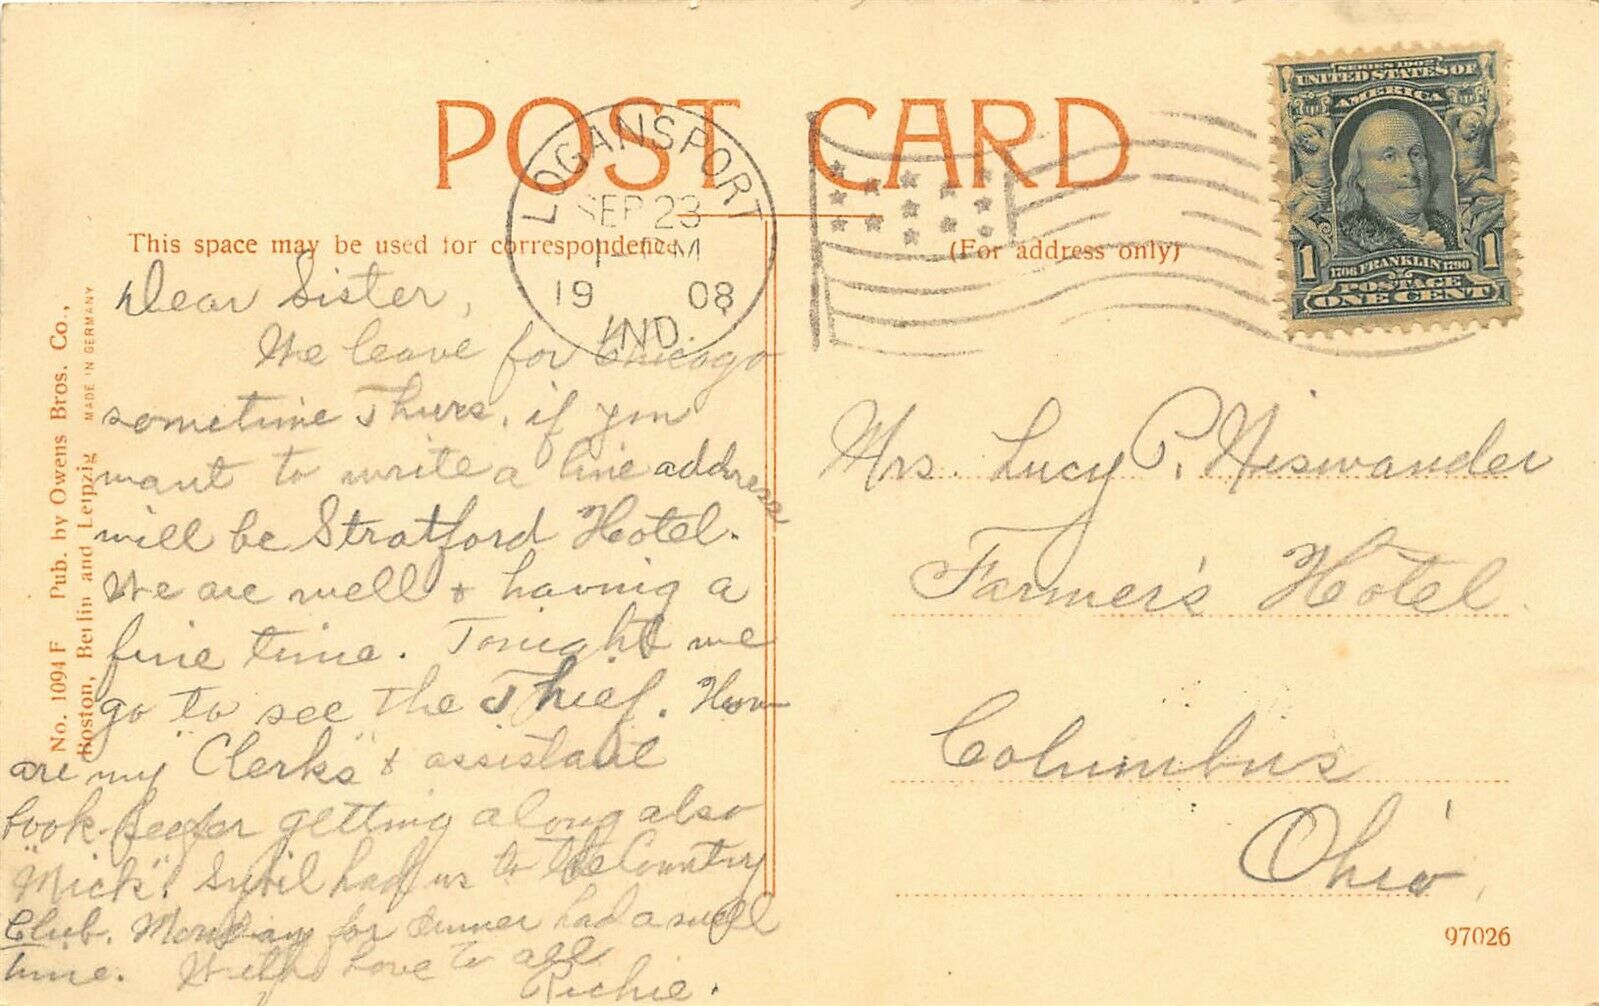 POST CARD
LOGANSPORT
SEP 23
PM
19 08
IND.
SERIES 1902
UNITED STATES OF
AMERICA
1 1
1706 FRANKLIN 1790
POSTAGE
ONE CENT
This space may be used for correspondence.
(For address only)
No. 1094 F Pub. by Owens Bros. Co.,
Boston, Berlin and Leipzig MADE IN GERMANY
Dear Sister,
We leave for Chicago
sometime Thurs, if you
want to write a line address
will be Stratford Hotel.
We are well & having a
fine time. Tonight we
go to see the Thief. How
are my "Clerks" & assistant
book-keeper getting along also
"Mick". Sybil had us to the Country
Club. Monday for dinner had a swell
time. With love to all
Richie.
Mrs. Lucy P. Niswander
Farmer's Hotel
Columbus
Ohio
97026